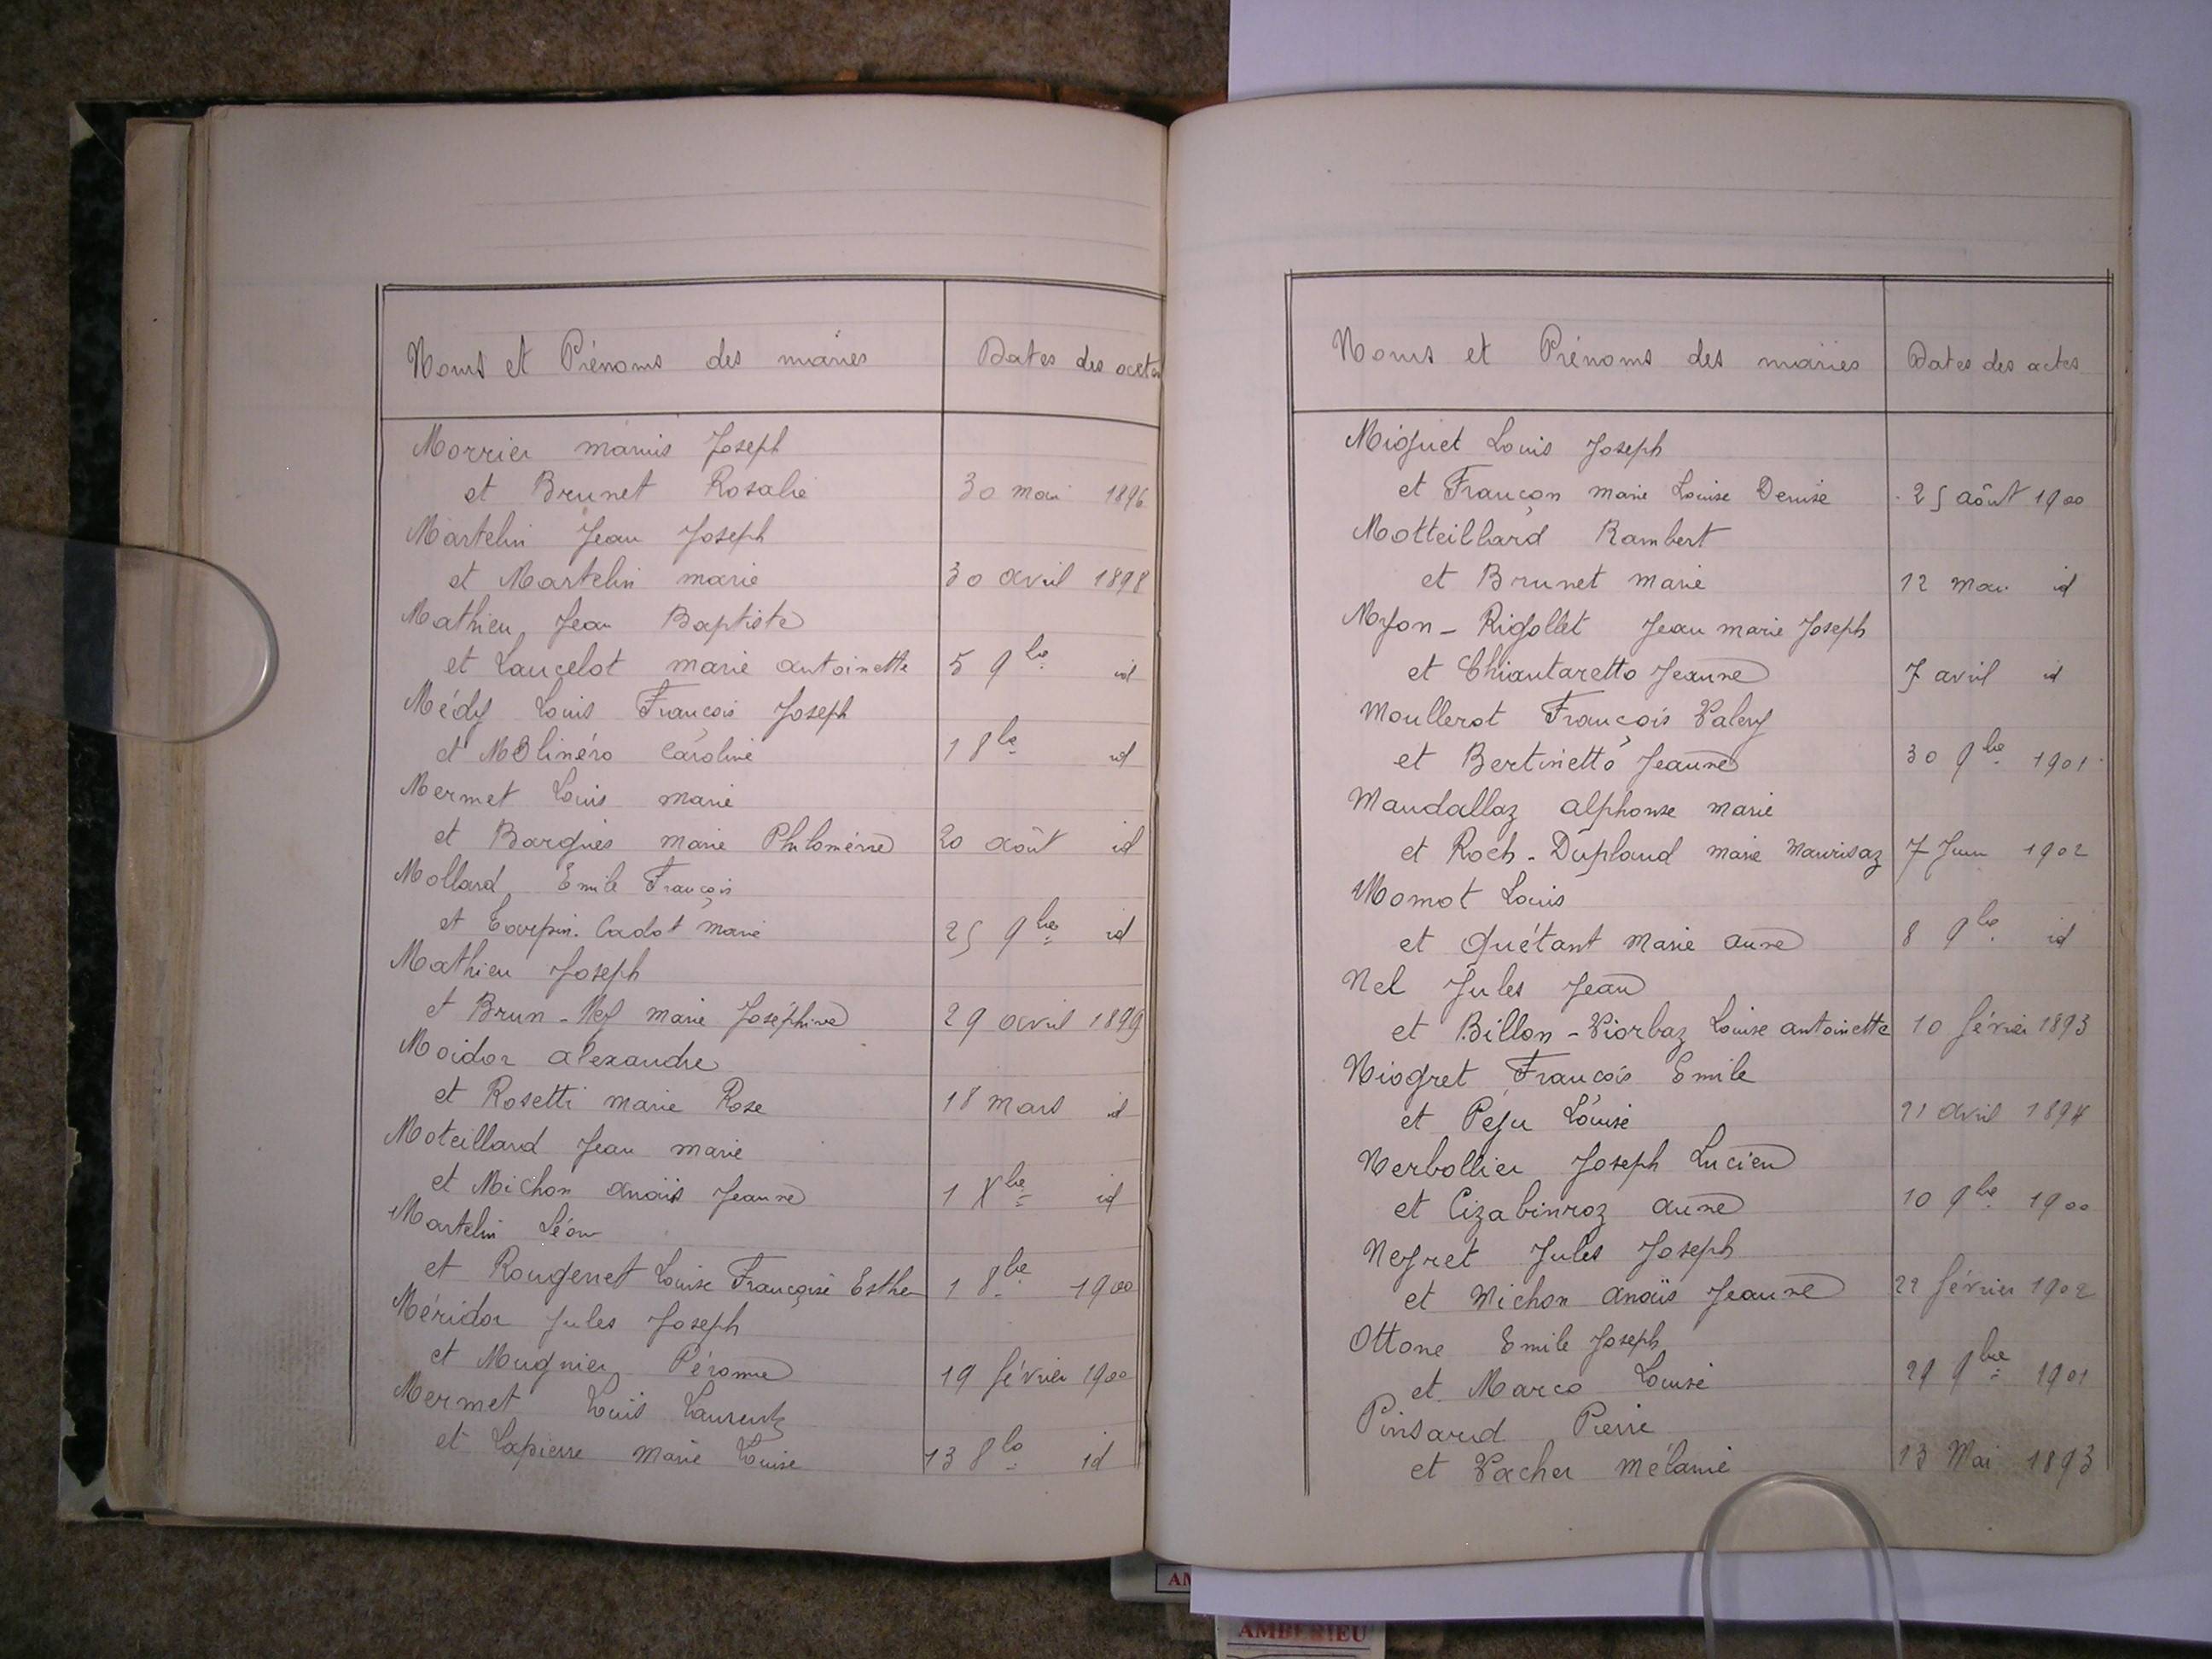 Noms et Prénoms des mariés Dates des actes
Morrier marius Joseph
et Brunet Rosalie 30 mai 1896
Martelin Jean Joseph
et Martelin marie 30 avril 1898
Mathieu Jean Baptiste
et Lancelot marie antoinette 5 9bre id
Médy Louis François Joseph
et Molinéro Caroline 1 8bre id
Mermet Louis marie
et Barguès marie Philomène 20 août id
Mollard Emile François
et Carpin-Cadot marie 25 9bre id
Mathieu Joseph
et Brun-Ney marie Joséphine 29 avril 1899
Moidor alexandre
et Rosetti marie Rose 18 mars id
Moteillard Jean marie
et Michon anaïs Jeanne 1 Xbre id
Martelin Léon
et Rougenet Louise Françoise Esther 1 8bre 1900
Méridor Jules Joseph
et Mugnier Péronne 19 février 1900
Mermet Louis Laurent
et Lapierre Marie Louise 13 8bre id
Noms et Prénoms des mariés Dates des actes
Miguet Louis Joseph
et Françon marie Louise Denise 25 août 1900
Motteillard Rambert
et Brunet marie 12 mai id
Myon-Rigollet Jean marie Joseph
et Chiantaretto Jeanne 7 avril id
Moullerot François Valery
et Bertinetto Jeanne 30 9bre 1901
Maudallaz alphonse marie
et Roch-Dupland marie Maurisaz 7 Juin 1902
Momot Louis
et Quétant Marie anne 8 9bre id
Nel Jules Jean
et Billon-Piorbaz Louise antoinette 10 février 1893
Niogret François Emile
et Péju Louise 21 avril 1894
Nerbollier Joseph Lucien
et Cizabinroz anne 10 9bre 1900
Neyret Jules Joseph
et Michon anaïs Jeanne 22 février 1902
Ottone Emile Joseph
et Marco Louise 29 9bre 1901
Pinsard Pierre
et Vacher mélanie 13 Mai 1893
AMBERIEU